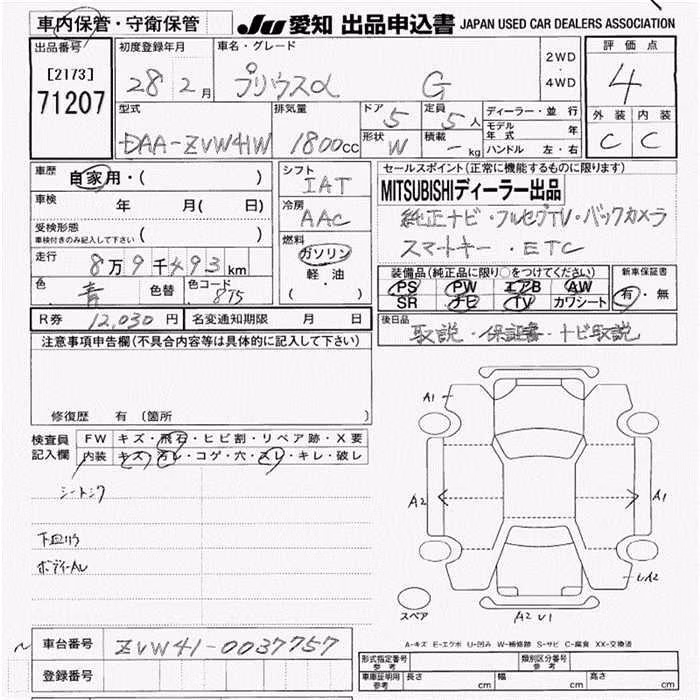 車内保管・守衛保管 JU 愛知 出品申込書 JAPAN USED CAR DEALERS ASSOCIATION
出品番号 初度登録年月 車名・グレード 評価点
[2173] 28 2月 プリウスα G 2WD・4WD 4
71207 型式 排気量 ドア 5 定員 5人 ディーラー・並行 外装 内装
DAA-ZVW41W 1800cc 形状 W 積載 - kg モデル年式 年 C C
ハンドル 左・右
車歴 自家用・( ) シフト セールスポイント(正常に機能するものに限ります)
IAT MITSUBISHIディーラー出品
車検 年 月( 日) 冷房 純正ナビ・フルセグTV・バックカメラ
AAC スマートキー・ETC
受検形態
車検付きのみ記入して下さい ( ) 燃料
走行 8万9千493km ガソリン 装備品(純正品に限り○をつけてください) 新車保証書
軽・油 PS PW エアB AW 有・無
色 青 色替 色コード 8T5 ( ) SR ナビ TV カワシート
R券 12,030円 名変通知期限 月 日 後日品
取説・保証書・ナビ取説
注意事項申告欄(不具合内容等は具体的に記入して下さい)
A1
修復歴 有(箇所 )
検査員 FW キズ・飛石・ヒビ割・リペア跡・X要
記入欄 内装 キズ・汚レ・コゲ・穴・スレ・キレ・破レ
A2 A1
下回りサ
ボディーAU
A2
スペア A2 U1
A-キズ E-エクボ U-凹み W-補修跡 S-サビ C-腐食 XX-交換済
車台番号 ZVW41-0037757
登録番号
形式指定番号 参考 類別区分番号 参考
車庫証明用 参考 長さ cm 幅 cm 高さ cm